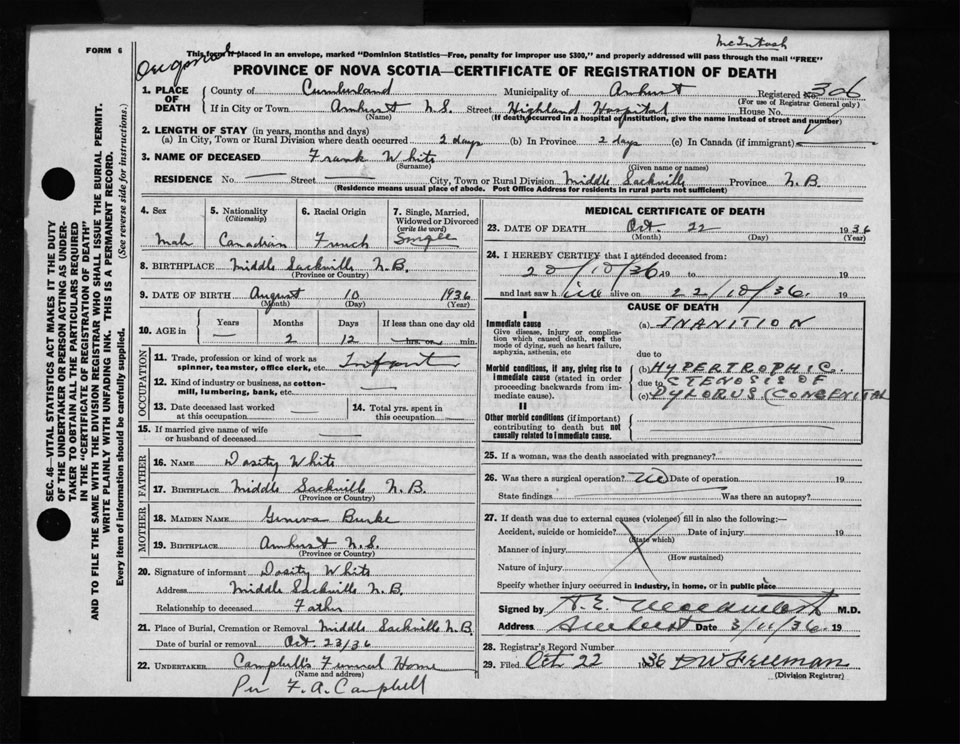 FORM 6
McIntosh
Original
This form if placed in an envelope, marked "Dominion Statistics—Free, penalty for improper use $300," and properly addressed will pass through the mail "FREE"
PROVINCE OF NOVA SCOTIA—CERTIFICATE OF REGISTRATION OF DEATH
1. PLACE OF DEATH County of Cumberland Municipality of Amherst Registered No. 306
(For use of Registrar General only)
If in City or Town Amherst N.S. Street Highland Hospital House No.
(Name) (If death occurred in a hospital or institution, give the name instead of street and number)
2. LENGTH OF STAY (in years, months and days)
(a) In City, Town or Rural Division where death occurred 2 days (b) In Province 2 days (c) In Canada (if immigrant)
3. NAME OF DECEASED Frank White
(Surname) (Given name or names)
RESIDENCE No. — Street — City, Town or Rural Division Middle Sackville Province N.B.
(Residence means usual place of abode. Post Office Address for residents in rural parts not sufficient)
4. Sex 5. Nationality (Citizenship) 6. Racial Origin 7. Single, Married, Widowed or Divorced (write the word)
Male Canadian French Single
8. BIRTHPLACE Middle Sackville N.B.
(Province or Country)
9. DATE OF BIRTH August 10 1936
(Month) (Day) (Year)
10. AGE in Years Months Days If less than one day old
— 2 12 hrs. or min.
OCCUPATION
11. Trade, profession or kind of work as spinner, teamster, office clerk, etc. Infant
12. Kind of industry or business, as cotton-mill, lumbering, bank, etc. —
13. Date deceased last worked at this occupation — 14. Total yrs. spent in this occupation —
15. If married give name of wife or husband of deceased —
FATHER
16. NAME Dosity White
17. BIRTHPLACE Middle Sackville N.B.
(Province or Country)
MOTHER
18. MAIDEN NAME Geneva Burke
19. BIRTHPLACE Amherst N.S.
(Province or Country)
20. Signature of informant Dosity White
Address Middle Sackville N.B.
Relationship to deceased Father
21. Place of Burial, Cremation or Removal Middle Sackville N.B.
Date of burial or removal Oct. 23/36
22. UNDERTAKER Campbell's Funeral Home
(Name and address)
Per F. A. Campbell
MEDICAL CERTIFICATE OF DEATH
23. DATE OF DEATH Oct. 22 1936
(Month) (Day) (Year)
24. I HEREBY CERTIFY that I attended deceased from:
20/10/36 19 to 19
and last saw h im alive on 22/10/36 19
CAUSE OF DEATH
I
Immediate cause (a) INANITION
Give disease, injury or complication which caused death, not the mode of dying, such as heart failure, asphyxia, asthenia, etc
due to
Morbid conditions, if any, giving rise to immediate cause (stated in order proceeding backwards from immediate cause).
(b) HYPERTROPHIC
due to STENOSIS OF
(c) PYLORUS (CONGENITAL
II
Other morbid conditions (if important) contributing to death but not causally related to immediate cause.
25. If a woman, was the death associated with pregnancy?
26. Was there a surgical operation? No Date of operation 19
State findings Was there an autopsy?
27. If death was due to external causes (violence) fill in also the following:—
Accident, suicide or homicide? Date of injury 19
(State which)
Manner of injury
(How sustained)
Nature of injury
Specify whether injury occurred in industry, in home, or in public place
Signed by H. E. M.D.
Address Amherst Date 3/11/36 19
28. Registrar's Record Number
29. Filed Oct 22 1936 D W Freeman
(Division Registrar)
SEC. 46—VITAL STATISTICS ACT MAKES IT THE DUTY
OF THE UNDERTAKER OR PERSON ACTING AS UNDER-
TAKER TO OBTAIN ALL THE PARTICULARS REQUIRED
IN THE "CERTIFICATE OF REGISTRATION OF DEATH"
AND TO FILE THE SAME WITH THE DIVISION REGISTRAR WHO SHALL ISSUE THE BURIAL PERMIT.
WRITE PLAINLY WITH UNFADING INK. THIS IS A PERMANENT RECORD.
Every item of information should be carefully supplied. (See reverse side for instructions.)